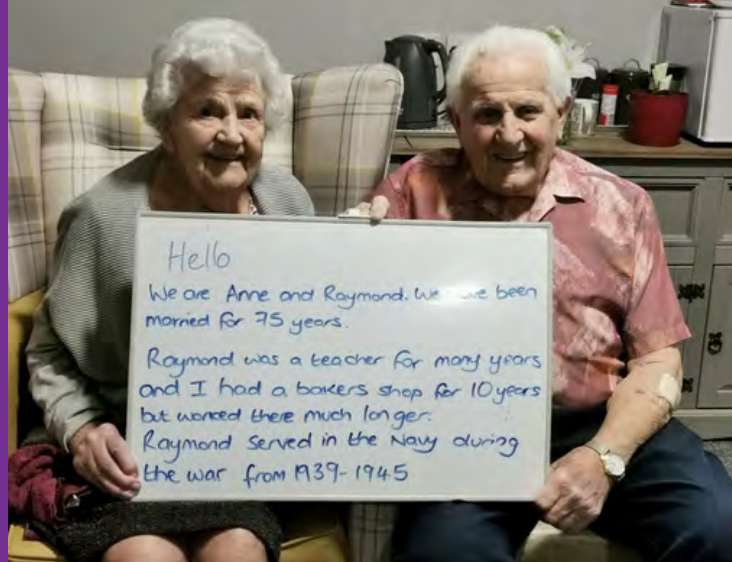 Hello
We are Anne and Raymond. We been
married for 75 years.
Raymond was a teacher for many years
and I had a bakers shop for 10 years
but worked there much longer.
Raymond served in the Navy during
the war from 1939-1945